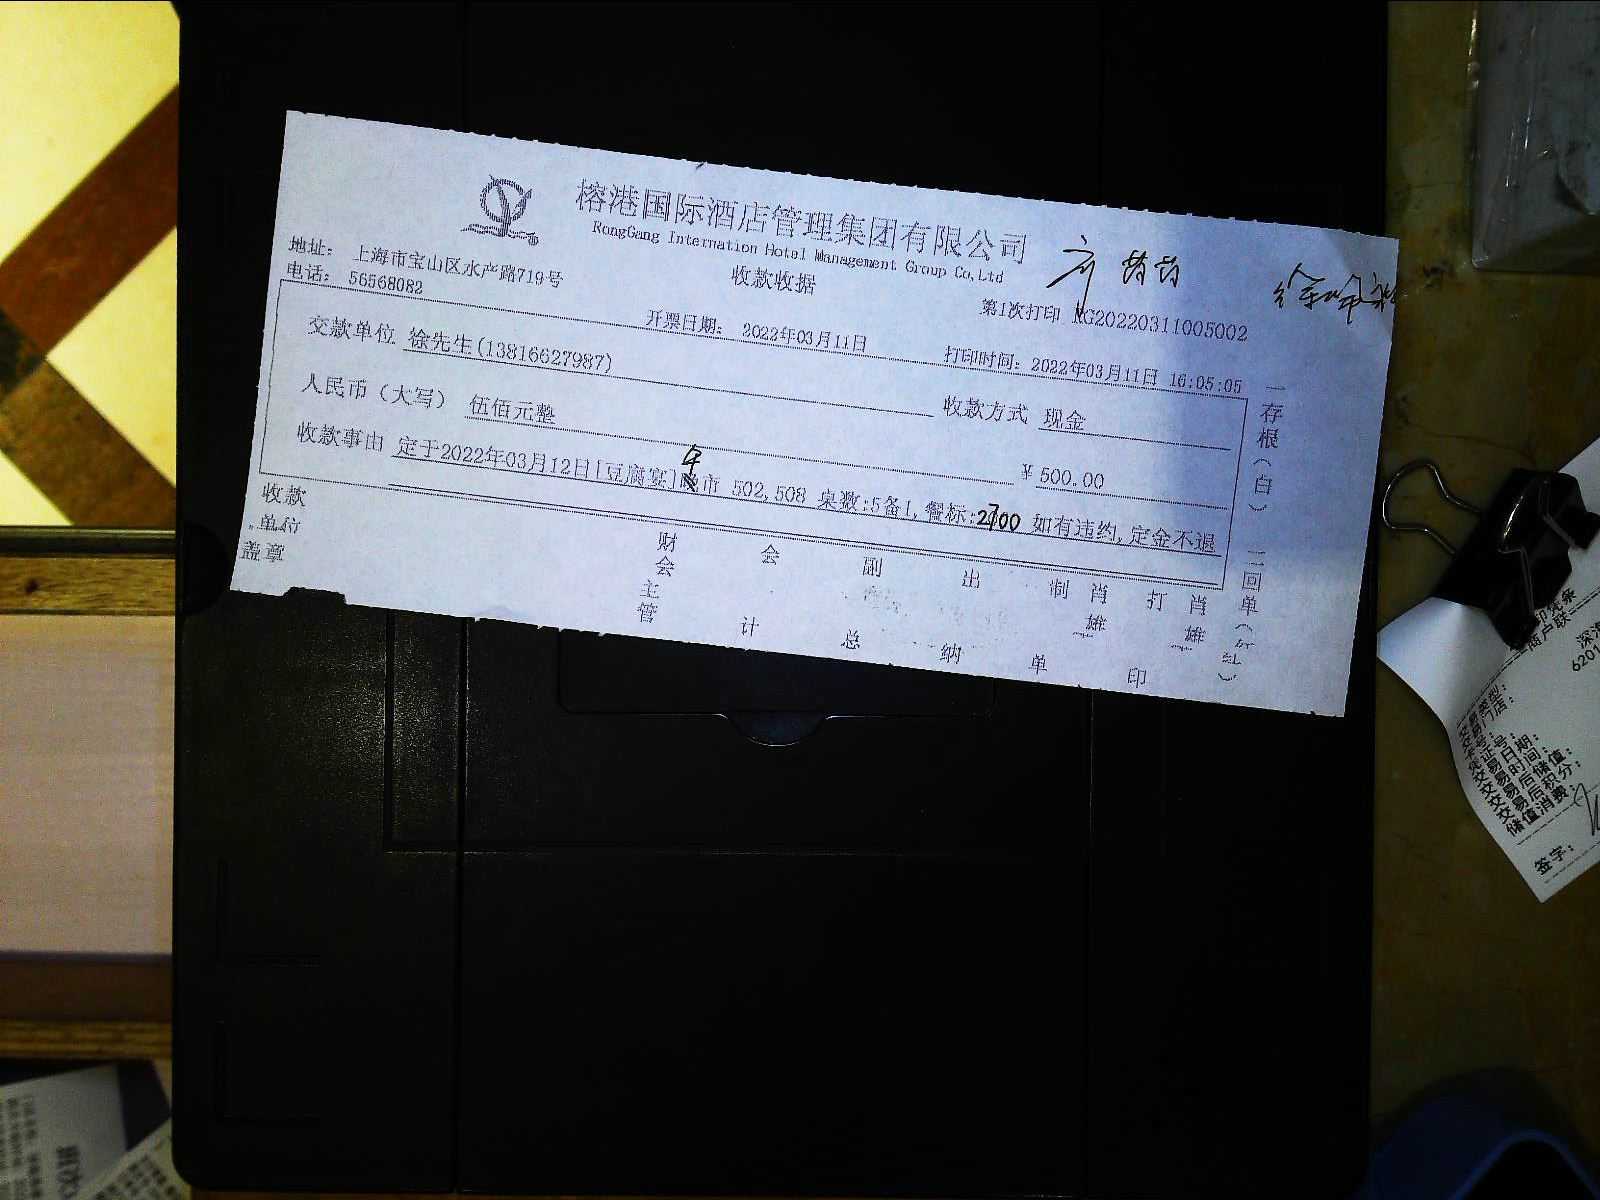 榕港国际酒店管理集团有限公司
RongGang Internation Hotel Management Group Co,Ltd
收款收据
地址： 上海市宝山区水产路719号
电话： 56568082
第1次打印 RG20220311005002
开票日期： 2022年03月11日
打印时间：2022年03月11日 16:05:05
交款单位 徐先生(13816627987)
收款方式 现金
人民币（大写） 伍佰元整
￥500.00
收款事由 定于2022年03月12日[豆腐宴]午市 502,508 桌数:5备1,餐标:2700 如有违约,定金不退
收款单位盖章
财会主管
会计
副总
出纳
制单
肖雄
打印
肖雄
一存根（白） 二回单（红）
商户联
6201
交易类型：
交易门店：
交易日期：
交易时间：
交易后储值：
交易后积分：
储值消费：
签字：